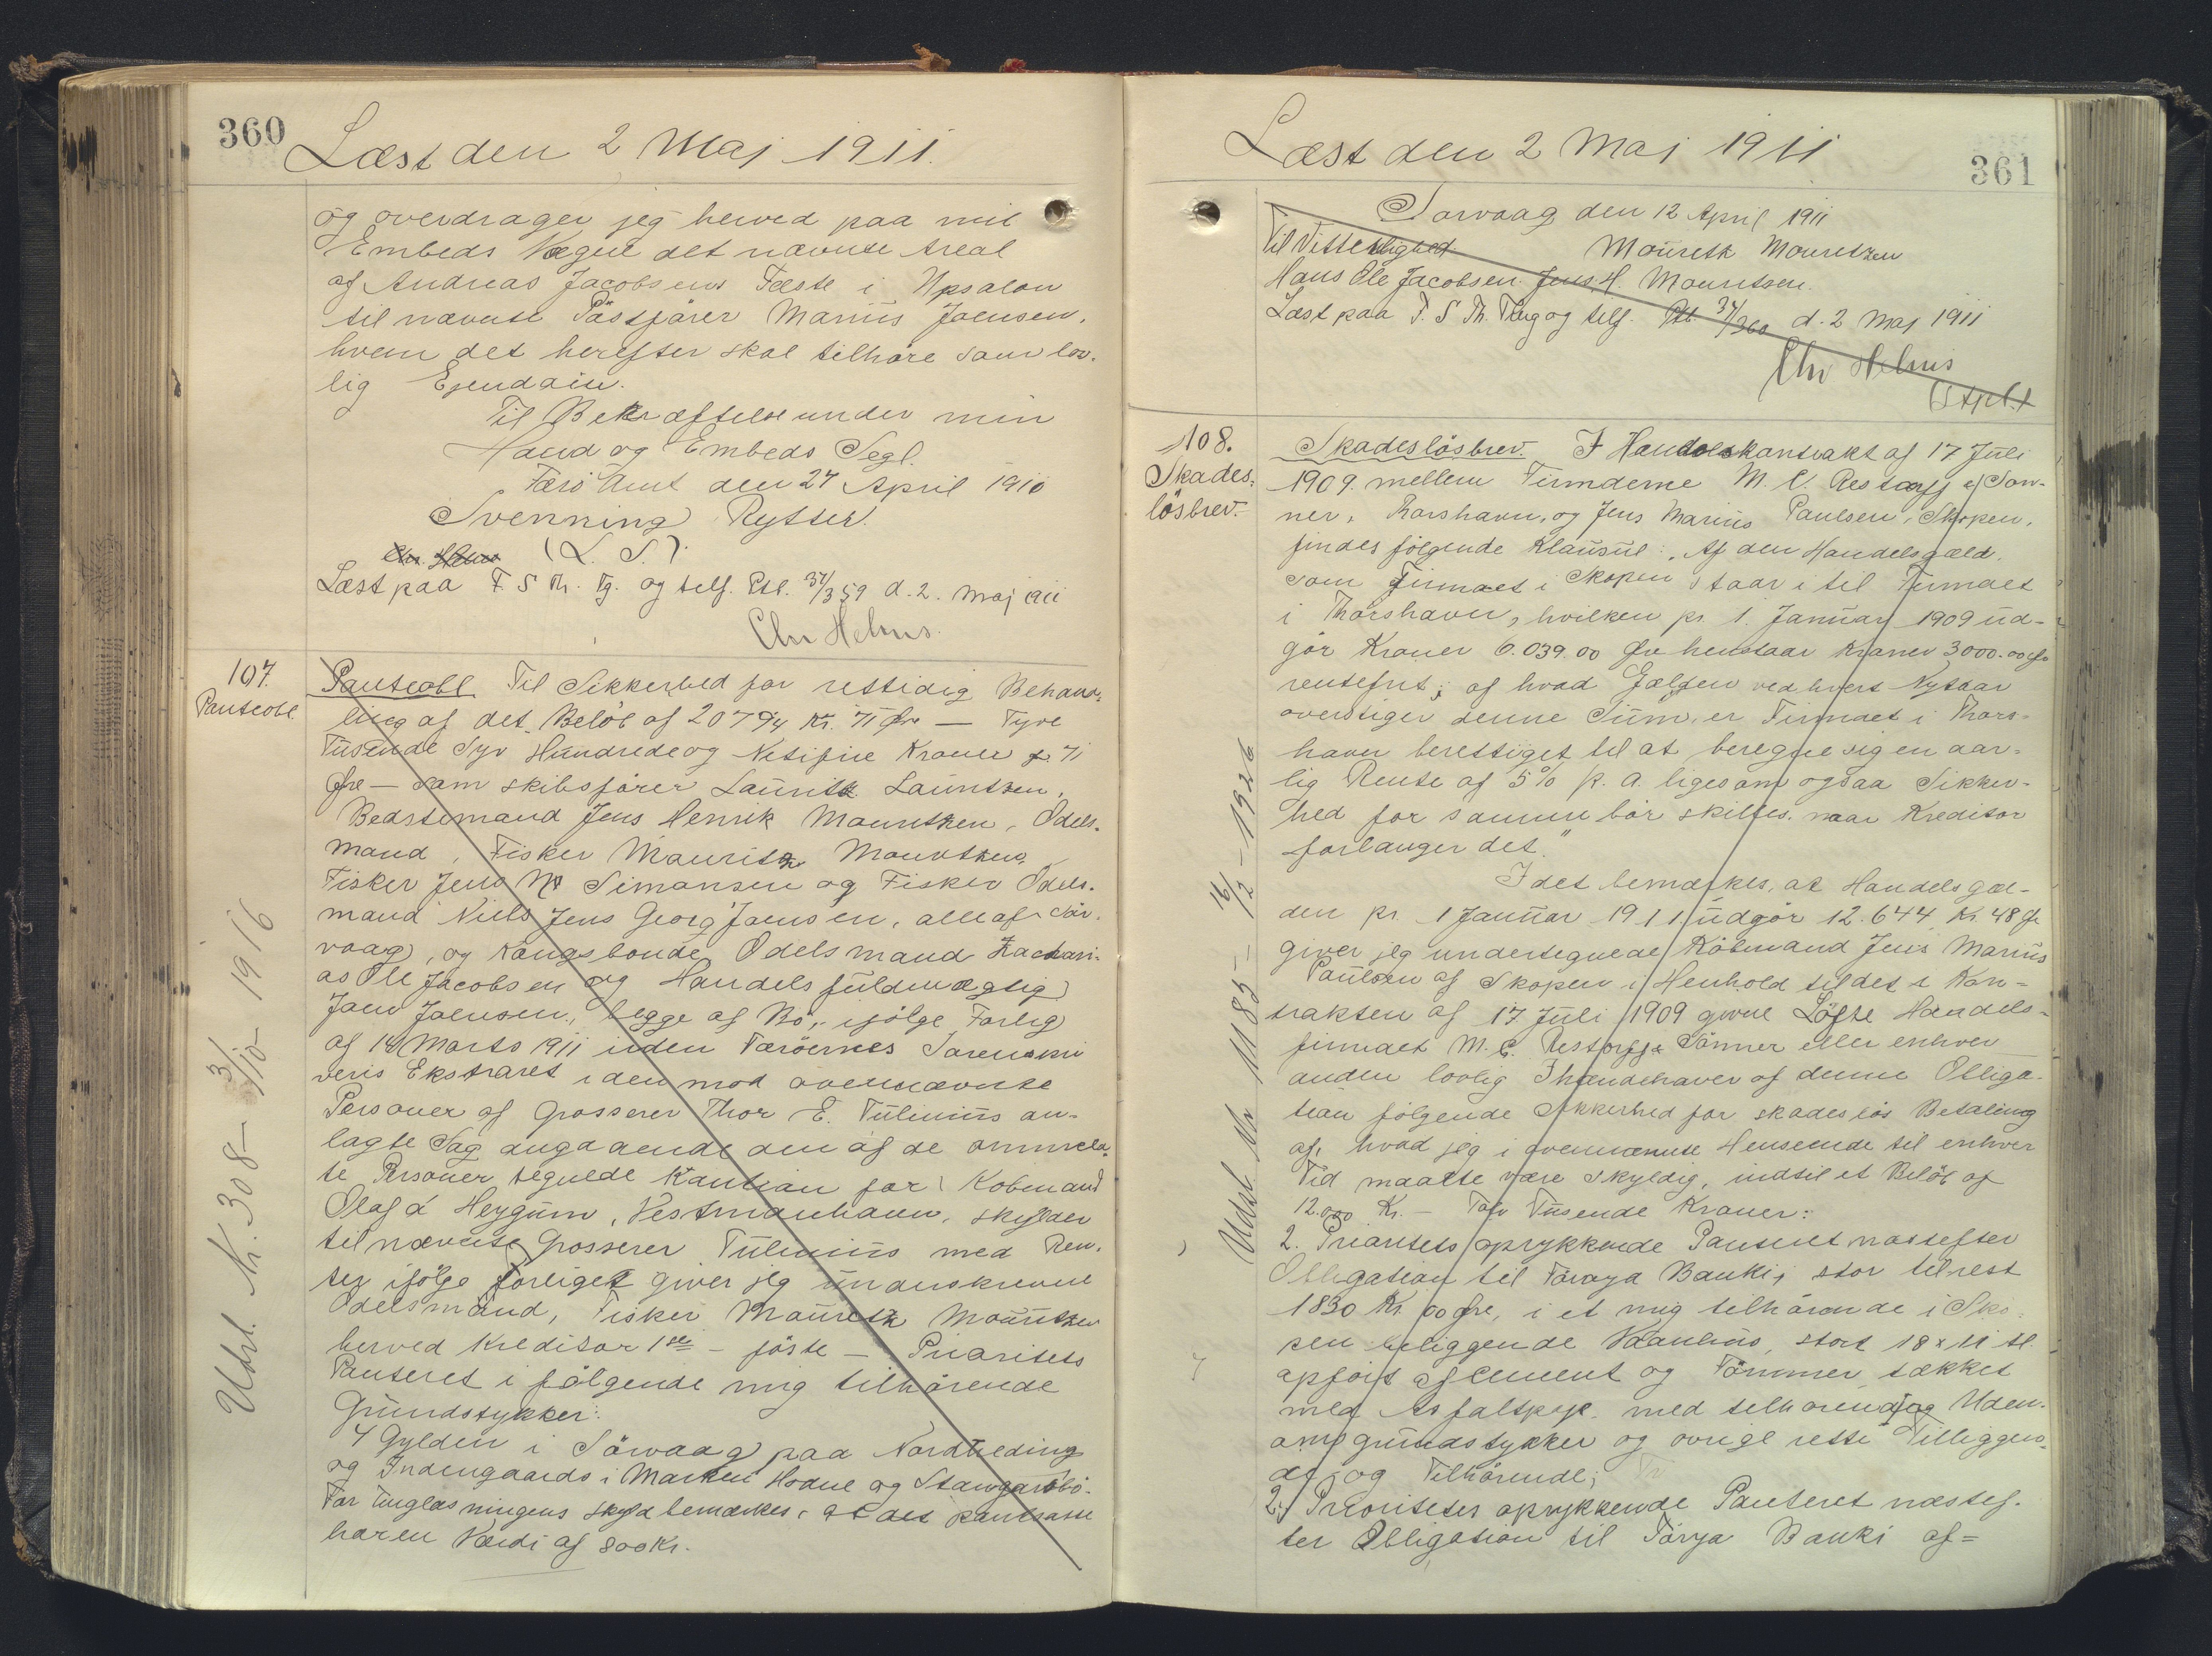 360
Læst den 2 Maj 1911.
og overdrager jeg herved paa mit
Embeds Vegne det nævnte Areal
af Andreas Jacobsens Fæste i Upsalon
til nævnte Pastjører Marius Joensen,
hvem det herefter skal tilhøre som lov-
lig Ejendom.
Til Bekræftelse under min
Haand og Embeds Segl.
Færø Amt den 27 April 1910
Svenning Rytter.
Chr. Helms (L. S.).
Læst paa F. S Th. Tg. og self. Ptl. 34/359 d. 2. Maj 1911
Chr Helms.
107.
Panteobl.
Panteobl Til Sikkerhed for rettidig Behand-
ling af det Beløb af 20794 Kr. 71 Øre — Tyve
Tusende Syv Hundrede og Nitifire Kroner 71
Øre — som skibsfører Lauritz Lauritzen,
Bedstemand Jens Henrik Mouritzen, Odels-
mand, Fisker Mauritz Mouritzen,
Fisker Jens M Simonsen og Fisker Odels-
mand Niels Jens Georg Joensen, alle af Sør-
vaag, og Kongsbonde Odelsmand Zachari-
as Ole Jacobsen og Handelsfuldmægtig
Joen Joensen, begge af Bø, ifølge Forlig
af 14 Marts 1911 inden Færøernes Sorenskri
veris Ekstraret i den mod ovennævnte
Personer af Grosserer Thor E. Tulinius an-
lagte Sag angaaende den af de ommeld-
te Personer tegnede Kaution for Kobmand
Olaf á Heygum, Vestmanhavn, skylder
til nævnte Grosserer Tulinius med Ren-
ter ifølge Forliget giver jeg unanskrevne
Odelsmand, Fisker Mouritz Mouritzen
herved Kreditor 1ste — første — Prioritets
Panteret i følgende mig tilhørende
Grundstykker:
4 Gylden i Sørvaag paa Nordheding
og Indengaards i Marken Hodne og Stavgarsbø.
For Tinglæsningens Skyld bemærkes, at det pantsatte
har en Værdi af 800 Kr.
Udsl. Nr. 308 - 3/10 - 1916
Læst den 2 Maj 1911
361
Sørvaag den 12 April 1911
Til Vitterlighed Mouretz Mouretzen
Hans Ole Jacobsen. Jens H. Mouritsen.
Læst paa F. S Th. Ting og self. Ptl. 34/360 d. 2 Maj 1911
Chr Helms
(Stplt.)
108.
Skades-
løsbrev.
Skadesløsbrev. I Handelskontrakt af 17 Juli
1909 mellem Firmderne M. C. Restorff & Søn-
ner, Thorshavn, og Jens Marius Paulsen, Skopen,
findes følgende Klausul: "Af den Handelsgæld,
som Firmaet i Skopen staar i til Firmaet
i Thorshavn, hvilken pr. 1. Januar 1909 ud-
gør Kroner 6.039.00 Øre henstaar Kroner 3000.00 Øre
rentefrit; af hvad Gælden ved hvert Nytaar
overstiger denne Sum, er Firmaet i Thors-
havn berettiget til at beregne sig en aar-
lig Rente af 5% p. a. ligesom ogsaa Sikker-
hed for samme bør skilles, naar Kreditor
forlanger det."
Idet bemærkes, at Handelsgæl-
den pr. 1 Januar 1911 udgør 12.644 Kr 48 Øre
giver jeg undertegnede Købmand Jens Marius
Paulsen af Skopen i Henhold til det i Kon-
trakten af 17 Juli 1909 givne Løfte Handels-
firmaet M. C. Restorff & Sønner eller enhver
anden lovlig Ihændehaver af denne Obliga-
tion følgende Sikkerhed for skadesløs Betaling
af, hvad jeg i ovennævnte Henseende til enhver
Tid maatte være skyldig, indtil et Beløb af
12.000 Kr. — Tolv Tusende Kroner:
2. Prioritets oprykkende Panteret næstefter
Obligation til Føroya Banki, stor tilrest
1830 Kr. 00 Øre, i et mig tilhørende i Sko-
pen beliggende Vaanhus, stort 18 x 11 al.
opført af Cement og Tømmer, tækket
med Asfaltpap. med tilhørende og Uden-
omsgrundstykker og øvrige rette Tilliggen-
de og Tilhørende;
2.) Prioritetes oprykkende Panteret næstef-
ter Obligation til Førya Banki af=
Udsl. Nr 1185 - 16/12 - 1926